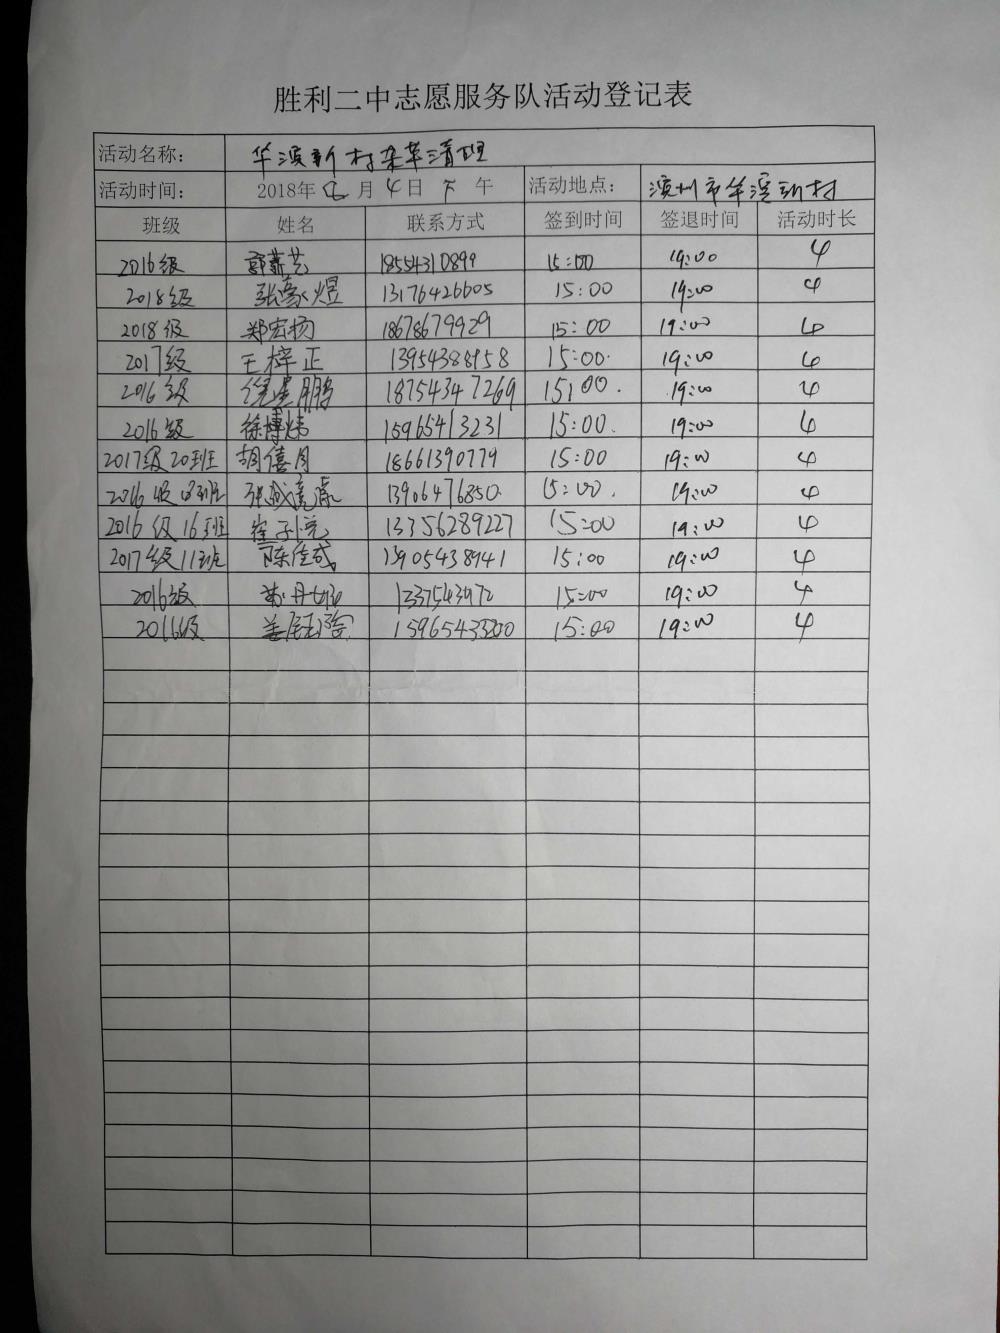 胜利二中志愿服务队活动登记表
活动名称： 华滨新村杂草清理
活动时间： 2018年 月 4日 下午 活动地点： 滨州市华滨新村
班级 姓名 联系方式 签到时间 签退时间 活动时长
2016级 18554310899 15:00 19:00 4
2018级 张豪煜 13176426605 15:00 19:00 4
2018级 郑宏扬 18678679929 15:00 19:00 4
2017级 王梓正 13954388958 15:00. 19:00 4
2016级 18754347269 15:00. 19:00 4
2016级 徐博炜 15965413231 15:00. 19:00 4
2017级20班 胡僖月 18661390779 15:00 19:00 4
2016级 班 13906476850. 15:00. 19:00 4
2016级16班 崔子 13356289227 15:00 19:00 4
2017级11班 陈佳成 13905438941 15:00 19:00 4
2016级 15:00 19:00 4
2016级 15:00 19:00 4